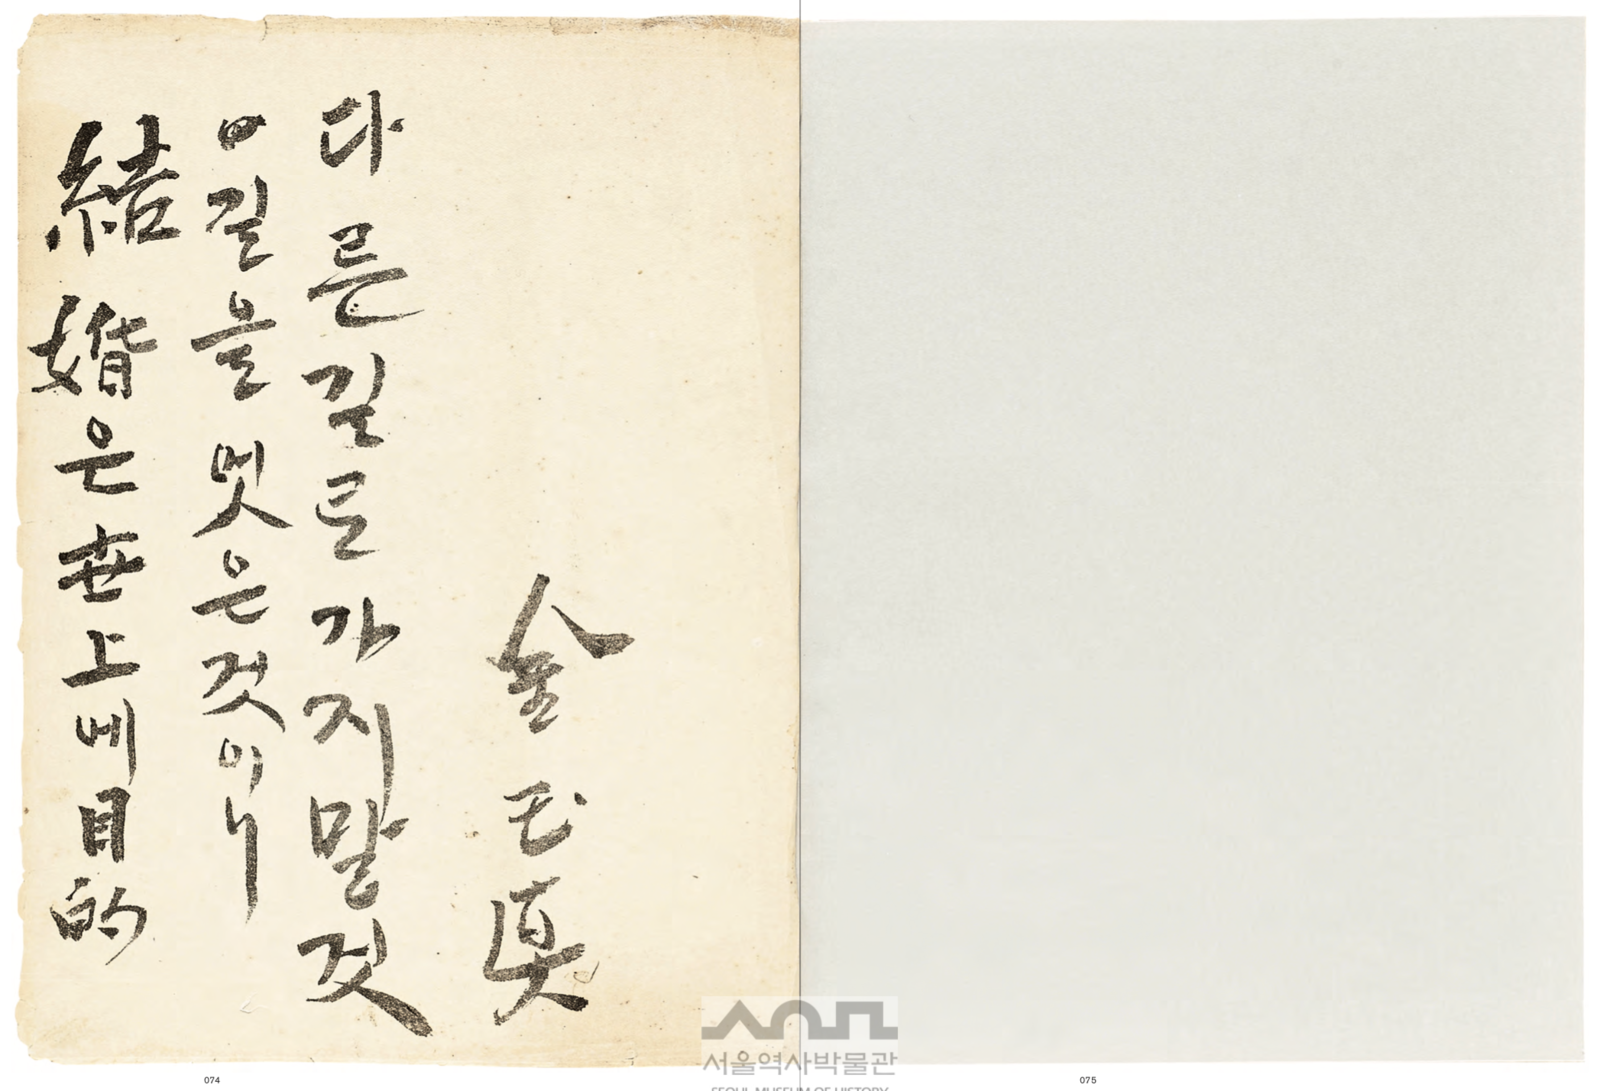 結婚은世上에目的
길을멋은것이니
다른길로가지말것
金玉眞
서울역사박물관
SEOUL MUSEUM OF HISTORY
074
075